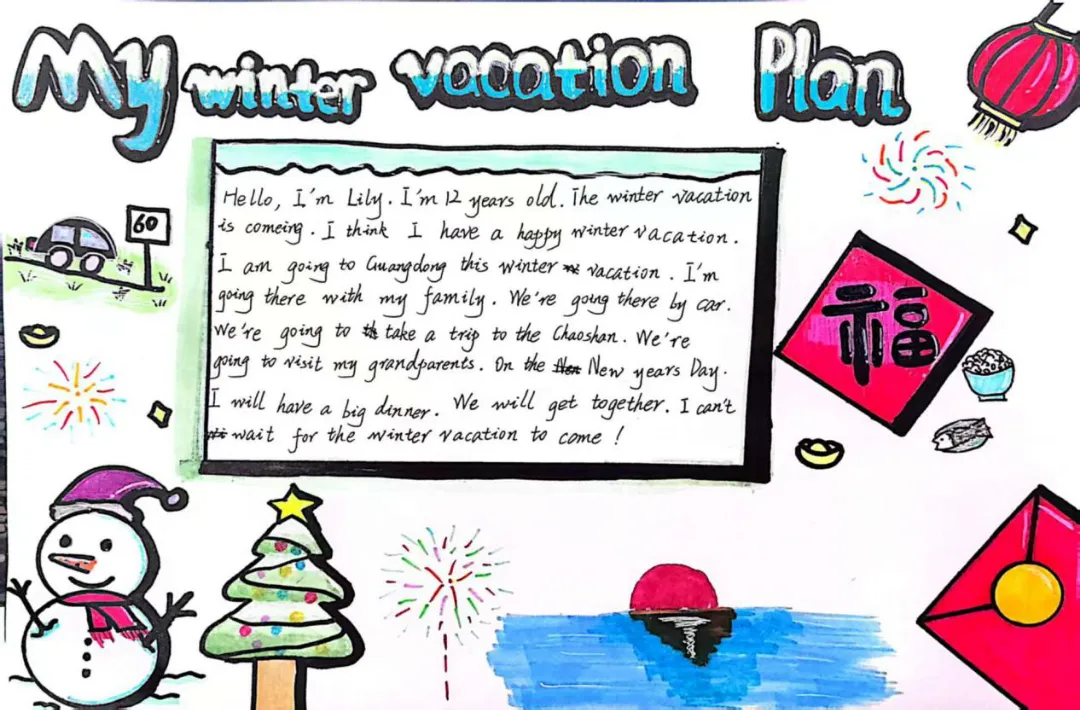 My winter vacation Plan
60
Hello, I'm Lily. I'm 12 years old. The winter vacation
is comeing. I think I have a happy winter vacation.
I am going to Guangdong this winter vacation. I'm
going there with my family. We're going there by car.
We're going to take a trip to the Chaoshan. We're
going to visit my grandparents. On the New years Day.
I will have a big dinner. We will get together. I can't
wait for the winter vacation to come!
福